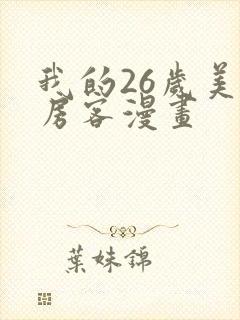 我的26歲美
房客漫畫
葉妹錦